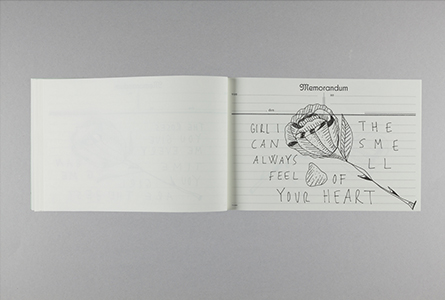 Memorandum
GIRL I THE
CAN SME
ALWAYS LL
FEEL OF
YOUR HEART